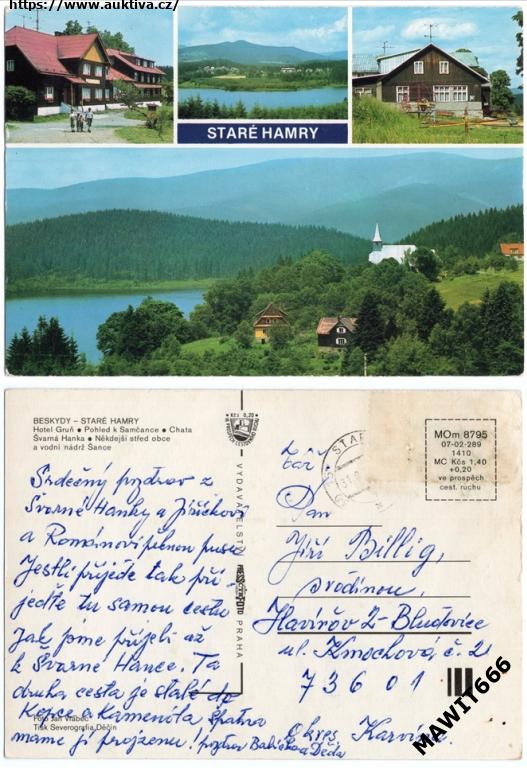 https://www.auktiva.cz/
STARÉ HAMRY
BESKYDY – STARÉ HAMRY
Hotel Gruň ● Pohled k Samčance ● Chata
Švarná Hanka ● Někdejší střed obce
a vodní nádrž Šance
Srdečný pozdrav z
Švarné Hanky a Jiříčkovi
a Románovi pusu
Jestli přijede tak při-
jeďte tu samou cestu
jak jsme přijeli až
k Švarné Hance. Ta
druhá cesta je stále do
Kopce a Kamenitá špatná
mame ji projzenu! pozdrav Babička
a Děda
Foto Jan Vrabec
Tisk Severografia Děčín
Kčs 0,20
VYDAVATELSTVÍ
PRESSFOTO
PRAHA
MOm 8795
07-02-289
1410
MC Kčs 1,40
+0,20
ve prospěch
cest. ruchu
STAR
31.
Pan
Jiří Billig,
s rodinou,
Havířov 2-Bludovice
ul. Kmochová, č. 2
73601
Okres Karviná
MAWIT666